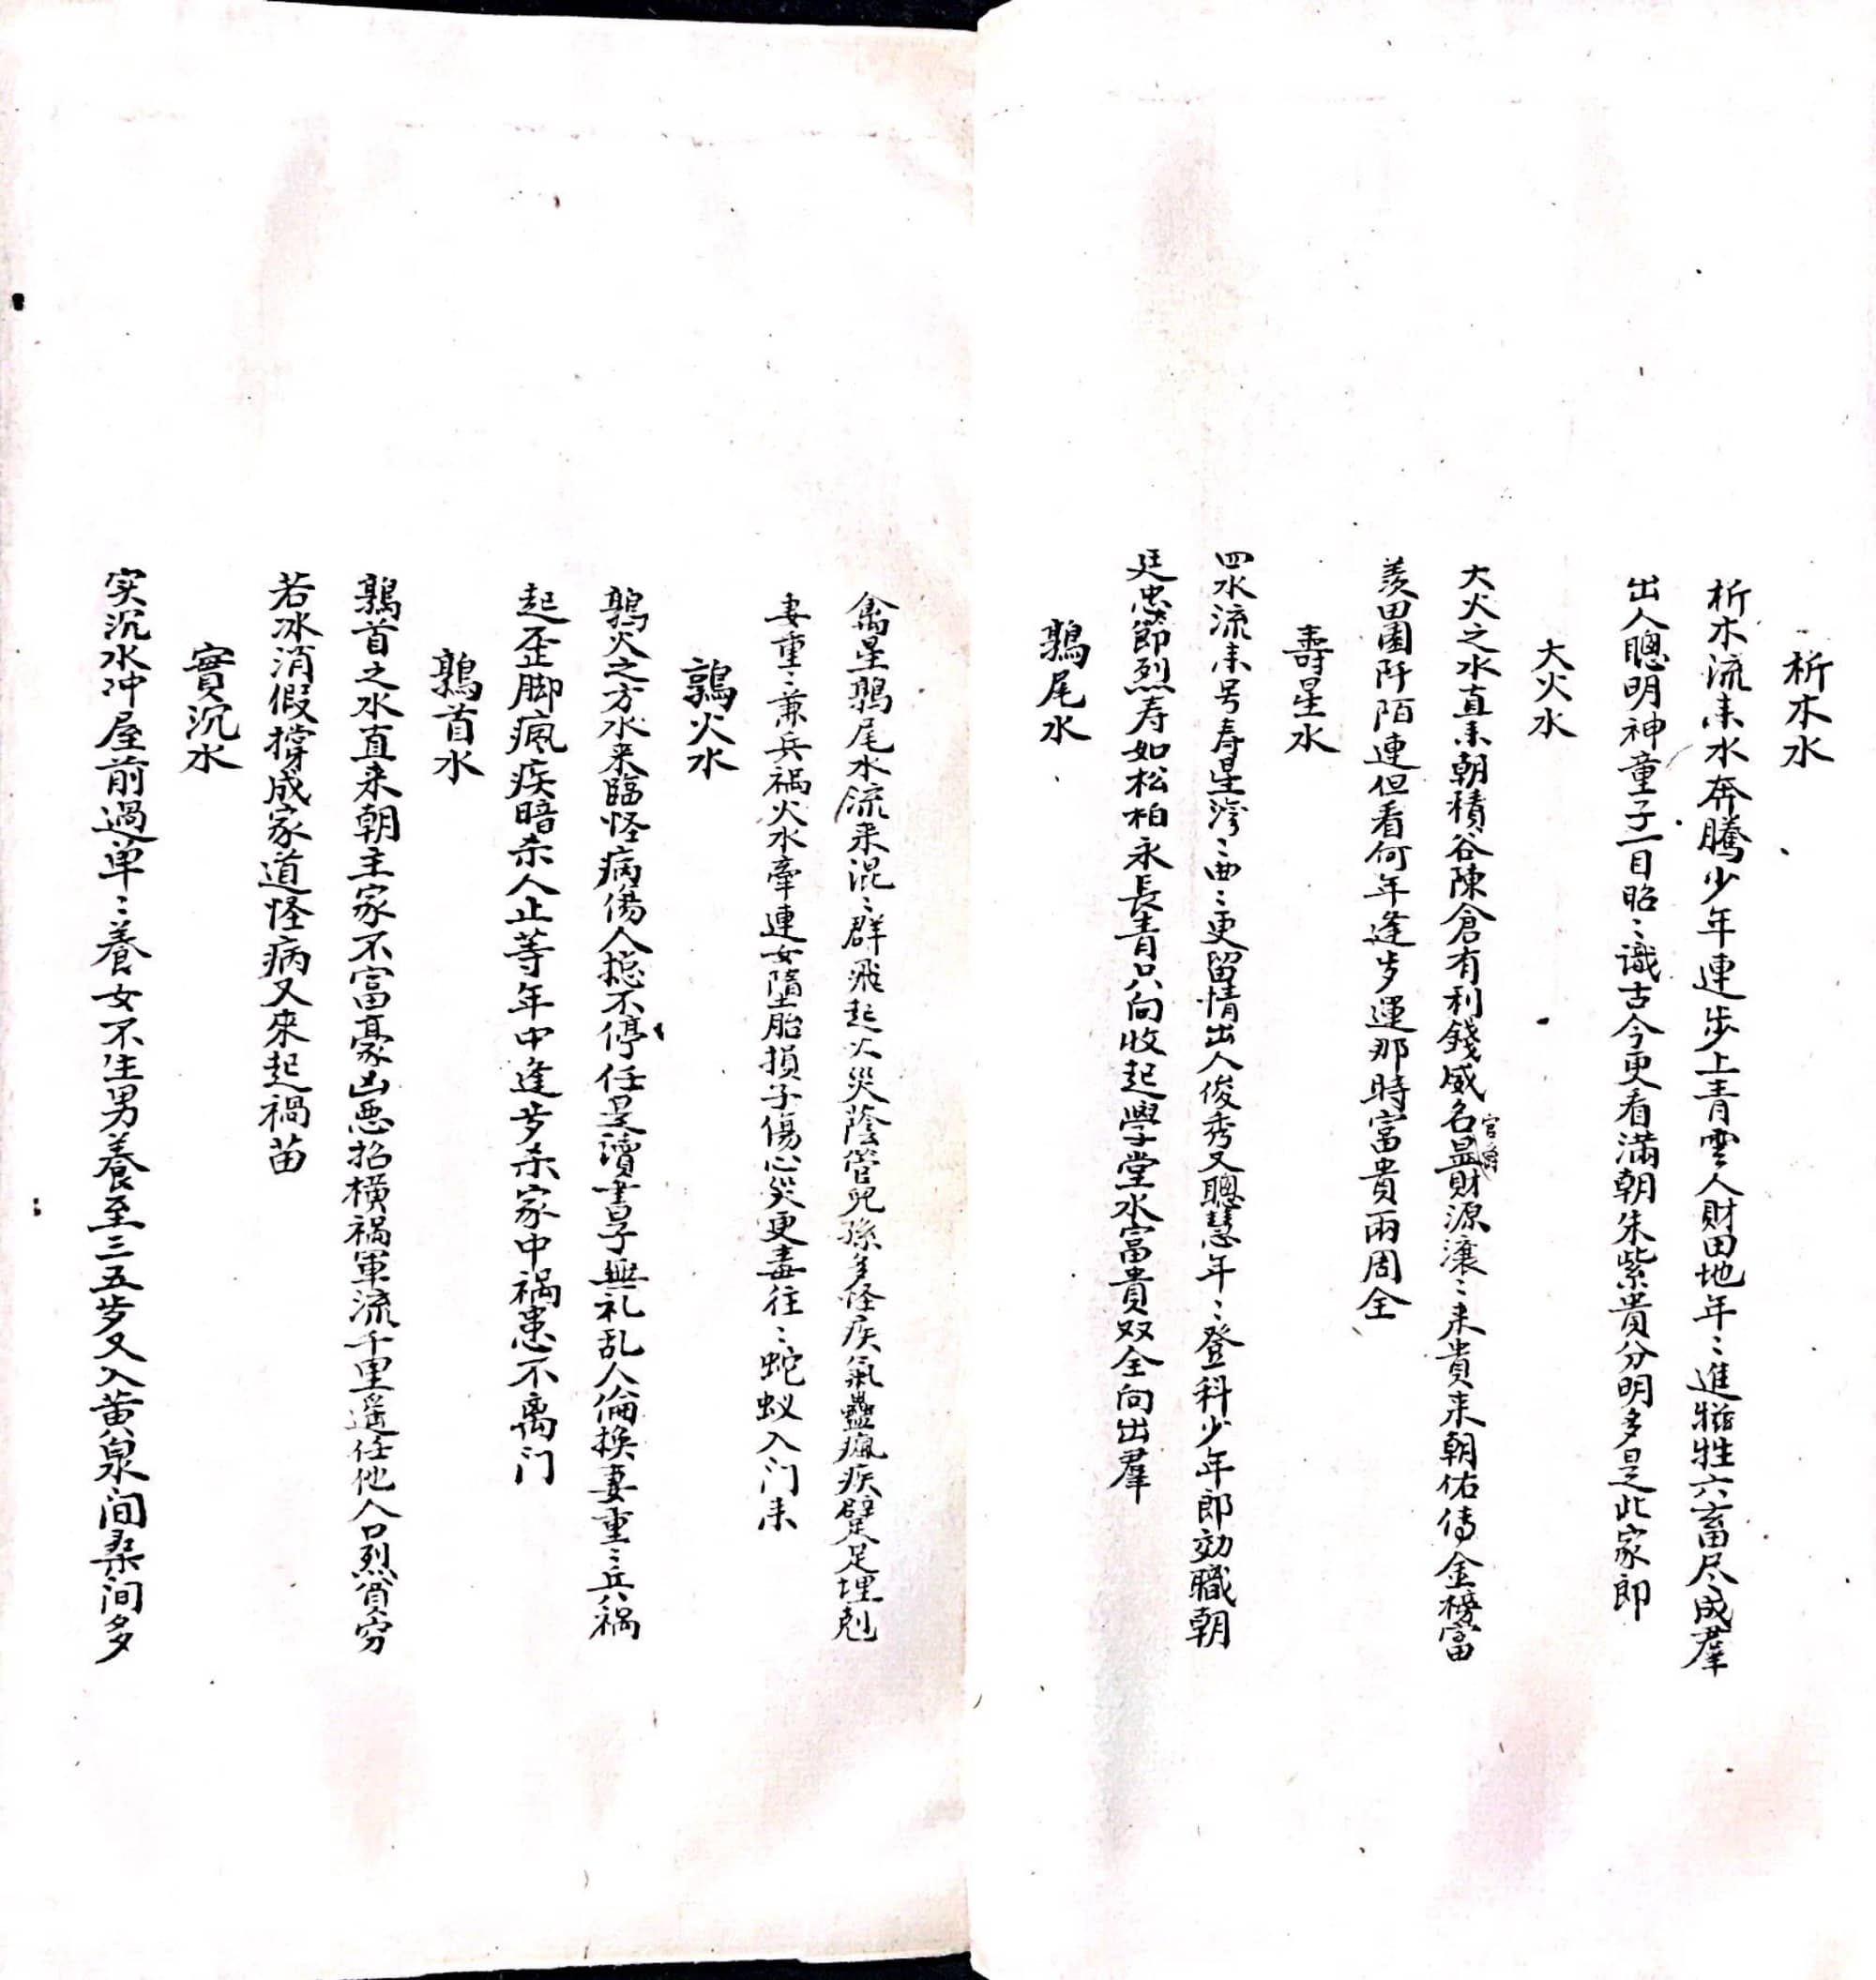 析木水
析木流来水奔騰少年連步上青雲人財田地年〻進犠牲六畜尽成群
出人聰明神童子一目昭〻識古今更看滿朝朱紫貴分明多是此家郎
大火水
大火之水直来朝積谷陳倉有利錢威名显官爵財源滚〻来貴来朝佑侍金樓富
羡田園阡陌連但看何年逢步運那時富貴兩周全
壽星水
四水流来号寿星湾〻曲〻更留情出人俊秀又聰慧年〻登科少年郎効職朝
廷忠節烈寿如松柏永長青只向收起學堂水富貴双全向出羣
鶉尾水
禽星鶉尾水流来混〻群飛起火災蔭管兒孫多怪疾氣蠱瘋疾躄足埋剋
妻重〻兼兵禍火水牽連女墮胎損子傷心災更毒往〻蛇蚁入门来
鶉火水
鶉火之方水来臨怪病傷人搃不停任是讀書子無礼乱人倫換妻重〻兵禍
起歪脚瘋疾暗杀人止等年中逢步杀家中禍患不离门
鶉首水
鶉首之水直来朝主家不富豪凶悪招横禍軍流千里遥任他人口烈貧穷
若冰消假撐成家道怪病又來起禍苗
實沉水
实沉水冲屋前過单〻養女不生男養至三五步又入黄泉间桑间多